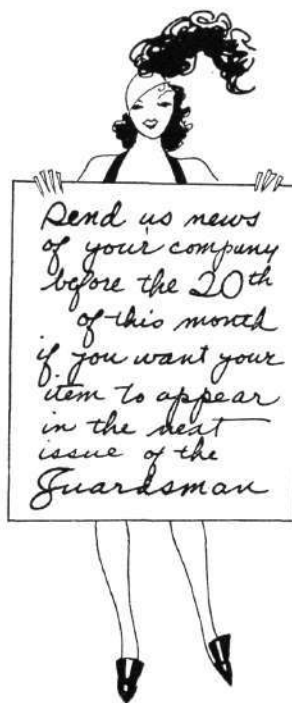 Send us news
of your company
before the 20th
of this month
if you want your
item to appear
in the next
issue of the
Guardsman